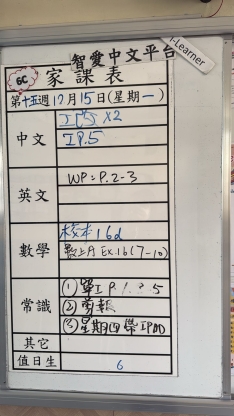 i-Learner
智愛中文平台
6C 家課表
第十五週12月15日(星期一)
中文
工作 X2
工P.5
英文
WP:P.2-3
數學
校本16d
數上月 Ex.16(7-10)
常識
①單工P.1,2,5
②剪報
③星期四帶IPAD
其它
值日生 6